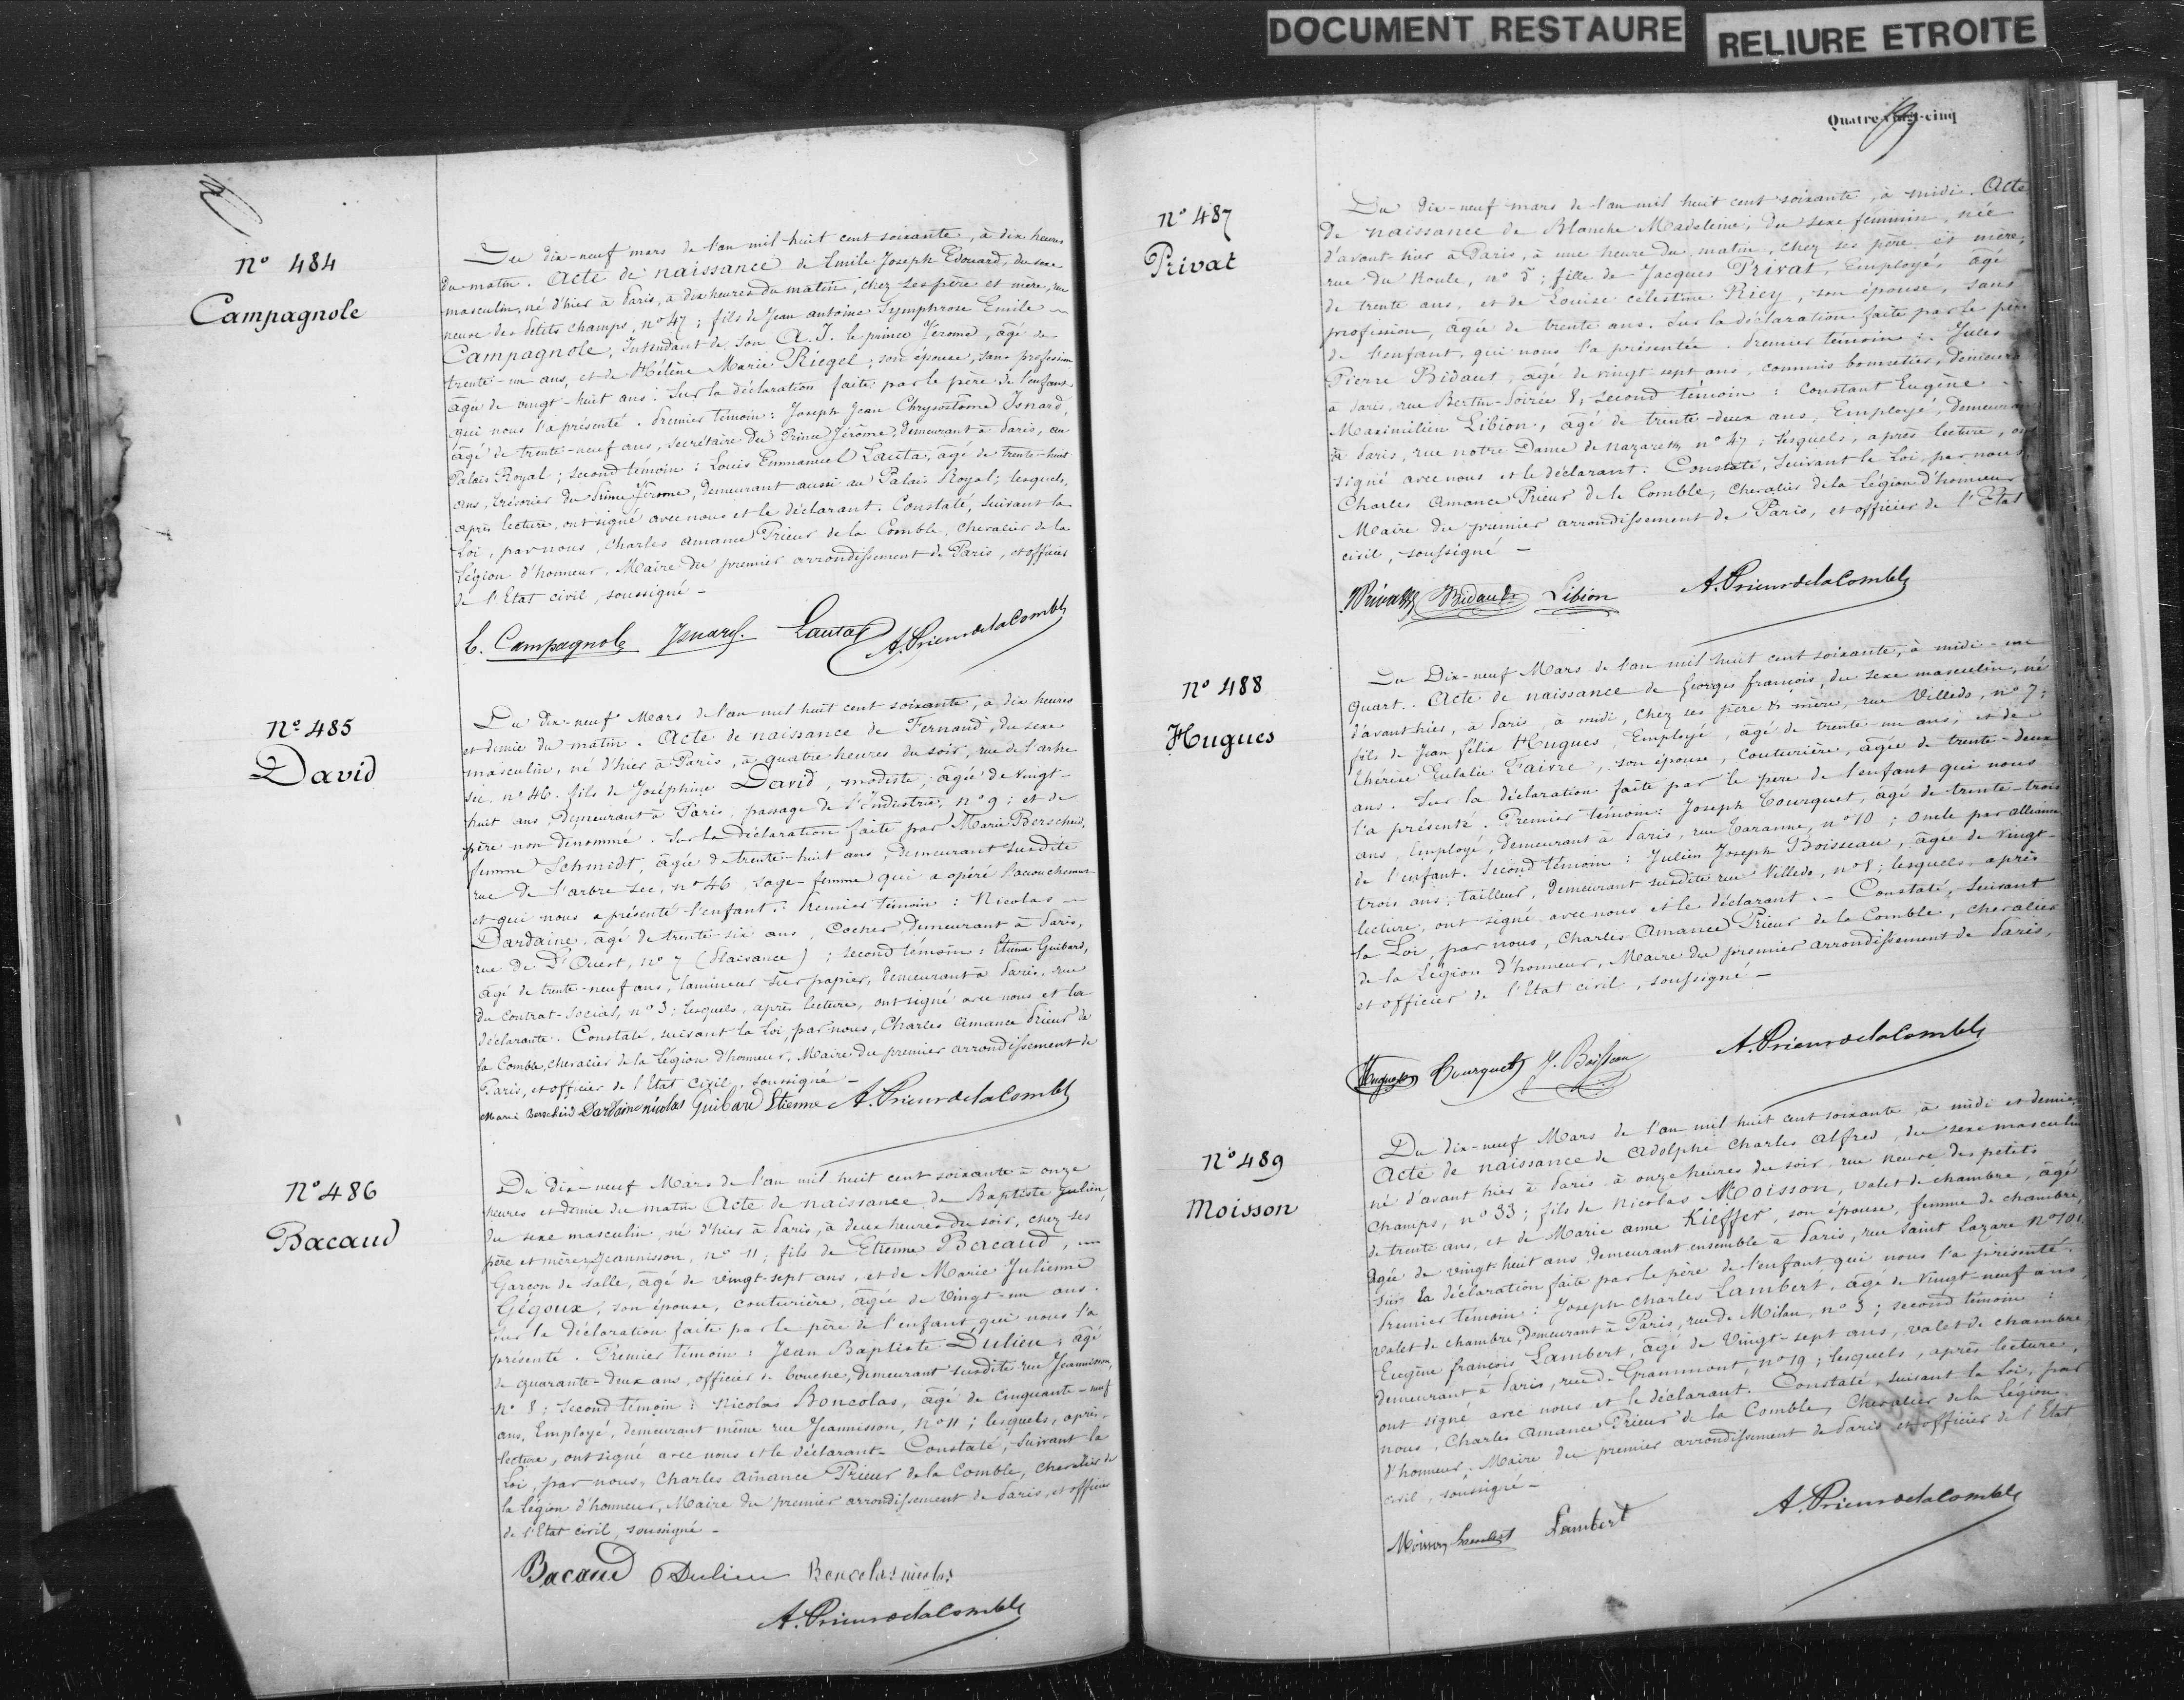 DOCUMENT RESTAURE
RELIURE ETROITE
N° 484
Campagnole
Du dix-neuf mars de l'an mil huit cent soixante, à dix heures
du matin. Acte de naissance de Emile Joseph Edouard, du sexe
masculin, né d'hier à Paris, à dix heures du matin, chez ses père et mère, rue
neuve des Petits champs, n° 47; fils de Jean antoine Symphrose Emile
Campagnole, Intendant de son A. I. le prince Jérome, âgé de
trente-un ans, et de Hélène Marie Riegel, son épouse, sans profession
âgée de vingt-huit ans. Sur la déclaration faite par le père de l'enfant
qui nous l'a présenté. Premier témoin: Joseph Jean Chrysostôme Isnard,
âgé de trente-neuf ans, secrétaire du Prince Jérôme, demeurant à Paris, au
Palais Royal; second témoin: Louis Emmanuel Lauta, âgé de trente-huit
ans, trésorier du Prince Jérome, demeurant aussi au Palais Royal; lesquels,
après lecture, ont signé avec nous et le déclarant. Constaté, suivant la
Loi, par nous, Charles Amance Prieur de la Comble, chevalier de la
Légion d'honneur, Maire du premier arrondissement de Paris, et officier
de l'Etat civil, soussigné -
E. Campagnole Isnard. Lauta A. Prieur de la Comble
N° 485
David
Du dix-neuf Mars de l'an mil huit cent soixante, à dix heures
et demie du matin. Acte de naissance de Fernand, du sexe
masculin, né d'hier à Paris, à quatre heures du soir, rue de l'arbre
sec, n° 46. fils de Joséphine David, modiste, âgée de vingt-
huit ans, demeurant à Paris, passage de l'Industrie, n° 9; et de
père non dénommé. Sur la déclaration faite par Marie Berscheid,
femme Schmidt, âgée de trente-huit ans, demeurant susdite
rue de l'arbre sec, n° 46, sage-femme qui a opéré l'accouchement
et qui nous a présenté l'enfant. Premier témoin: Nicolas
Dardaine, âgé de trente-six ans, Cocher, demeurant à Paris,
rue de l'Ouest, n° 7 (Plaisance); second témoin: Etienne Guibard,
âgé de trente-neuf ans, lamineur sur papier, demeurant à Paris, rue
du Contrat-Social, n° 3; lesquels, après lecture, ont signé avec nous et la
déclarante. Constaté, suivant la Loi, par nous, Charles Amance Prieur de
la Comble, chevalier de la Légion d'honneur, Maire du premier arrondissement de
Paris, et officier de l'Etat civil, soussigné -
Marie Berscheid Dardaine nicolas Guibard Etienne A. Prieur de la Comble
N° 486
Bacaud
Du dix-neuf Mars de l'an mil huit cent soixante à onze
heures et demie du matin Acte de naissance de Baptiste Julien,
du sexe masculin, né d'hier à Paris, à deux heures du soir, chez ses
père et mère, rue Jeannisson, n° 11; fils de Etienne Bacaud,
Garçon de salle, âgé de vingt-sept ans, et de Marie Julienne
Gégoux, son épouse, couturière, âgée de vingt-un ans.
Sur la déclaration faite par le père de l'enfant qui nous l'a
présenté. Premier témoin: Jean Baptiste Dulieu, âgé
de quarante-deux ans, officier de bouche, demeurant susdite rue Jeannisson,
n° 8; second témoin: Nicolas Boncolas, âgé de cinquante-neuf
ans, Employé, demeurant même rue Jeannisson, n° 11; lesquels, après
lecture, ont signé avec nous et le déclarant. Constaté, suivant la
Loi, par nous, Charles Amance Prieur de la Comble, chevalier de
la Légion d'honneur, Maire du premier arrondissement de Paris, et officier
de l'Etat civil, soussigné -
Bacaud Dulieu Boncolas nicolas
A. Prieur de la Comble
Quatre-vingt-cinq
N° 487
Privat
Du dix-neuf mars de l'an mil huit cent soixante, à midi. Acte
de naissance de Blanche Madeleine, du sexe féminin, née
d'avant-hier à Paris, à une heure du matin, chez ses père et mère,
rue du Roule, n° 5; fille de Jacques Privat, Employé, âgé
de trente ans, et de Louise célestine Ricy, son épouse, sans
profession, âgée de trente ans. Sur la déclaration faite par le père
de l'enfant, qui nous l'a présentée. Premier témoin: Jules
Pierre Bidaut, âgé de vingt-sept ans, commis bonnetier, demeurant
à Paris, rue Bertin-Poirée 8; second témoin: Constant Eugène
Maximilien Libion, âgé de trente-deux ans, Employé, demeurant
à Paris, rue notre Dame de nazareth, n° 47; lesquels, après lecture, ont
signé avec nous et le déclarant. Constaté, suivant la Loi, par nous
Charles Amance Prieur de la Comble, chevalier de la Légion d'honneur
Maire du premier arrondissement de Paris, et officier de l'Etat
civil, soussigné -
Privat Bidaut Libion A. Prieur de la Comble
N° 488
Hugues
Du Dix-neuf Mars de l'an mil huit cent soixante, à midi-un
quart. Acte de naissance de Georges françois, du sexe masculin, né
d'avant hier, à Paris, à midi, chez ses père & mère, rue Villedo, n° 7;
fils de Jean félix Hugues, Employé, âgé de trente-un ans, et de
thérèse Eulalie Faivre, son épouse, Couturière, âgée de trente-deux
ans. Sur la déclaration faite par le père de l'enfant qui nous
l'a présenté. Premier témoin: Joseph Tourquet, âgé de trente-trois
ans, Employé, demeurant à Paris, rue Taranne, n° 10; oncle par alliance
de l'enfant. Second témoin: Julien Joseph Boisseau, âgé de vingt-
trois ans, tailleur, demeurant susdite rue Villedo, n° 8; lesquels, après
lecture, ont signé avec nous et le déclarant. - Constaté, suivant
la Loi, par nous, Charles Amance Prieur de la Comble, chevalier
de la Légion d'honneur, Maire du premier arrondissement de Paris,
et officier de l'Etat civil, soussigné -
Hugues Tourquet J. Boisseau A. Prieur de la Comble
N° 489
Moisson
Du dix-neuf Mars de l'an mil huit cent soixante à midi et demie,
Acte de naissance de Adolphe Charles Alfred, du sexe masculin
né d'avant hier à Paris à onze heures du soir, rue neuve des petits
Champs, n° 33; fils de Nicolas Moisson, valet de chambre, âgé
de trente ans, et de Marie anne Kieffer, son épouse, femme de chambre,
âgée de vingt-huit ans, demeurant ensemble à Paris, rue Saint Lazare n° 101.
Sur la déclaration faite par le père de l'enfant qui nous l'a présenté.
Premier témoin: Joseph Charles Lambert, âgé de vingt-neuf ans,
valet de chambre, demeurant à Paris, rue de Milan, n° 3; second témoin:
Eugène françois Lambert, âgé de vingt-sept ans, valet de chambre
demeurant à Paris, rue de Grammont, n° 19; lesquels, après lecture,
ont signé avec nous et le déclarant. Constaté, suivant la loi, par
nous, Charles Amance Prieur de la Comble, Chevalier de la Légion
d'honneur, Maire du premier arrondissement de Paris et officier de l'Etat
civil, soussigné -
Moisson Lambert Lambert A. Prieur de la Comble